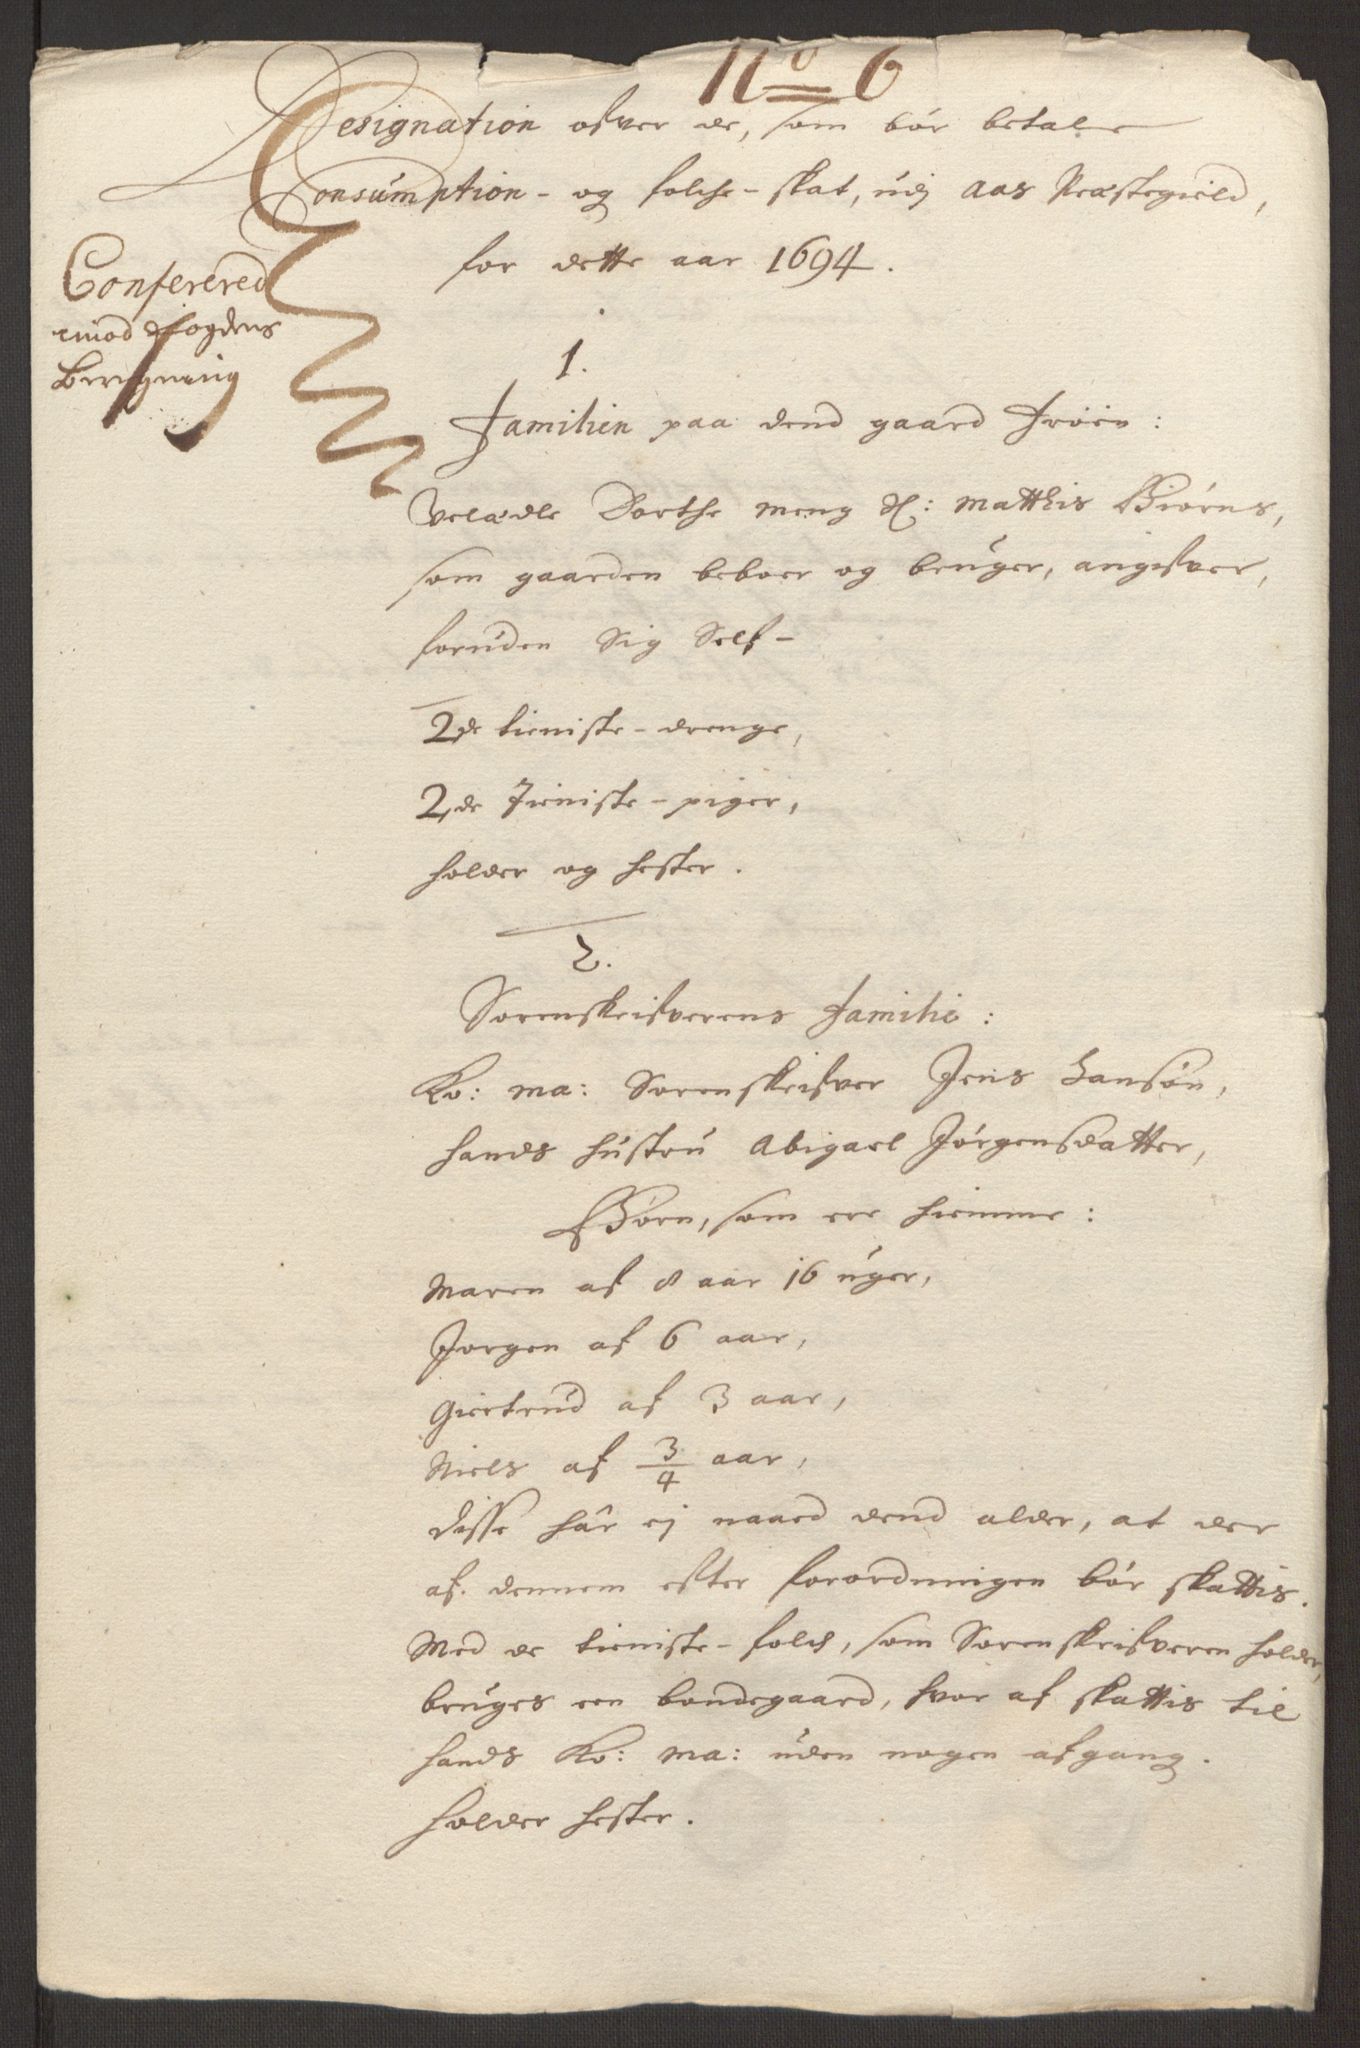 No 6
Designation ofver de, som bör betale
Consumption- og folche-skat, udj Aas Præstegield,
for dette aar 1694.
Conferered
imod fogdens
Beregning
1.
Familien paa dend gaard Fröen:
Velædle Dorthe Meng Sl: Matthis Biörns,
som gaarden beboer og bruger, angifver,
foruden Sig Self-
2de tieniste-drenge,
2de Tieniste-piger,
holder og hester.
2.
Sorenskrifverens Familie:
Ko: Ma: Sorenskrifver Jens Hansön,
hands hustru Abigael Jörgensdatter,
Börn, som ere hiemme:
Maren af 8 aar 16 uger,
Jorgen af 6 aar,
Giertrud af 3 aar,
Niels af 3/4 aar,
disse har ej naaed dend alder, at der
af dennem efter forordningen bör skattis.
Med de tieniste-folch, som Sorenskrifveren holder,
bruges een bondegaard, hvor af skattis til
hands Ko: Ma: uden nogen afgang.
holder hester.